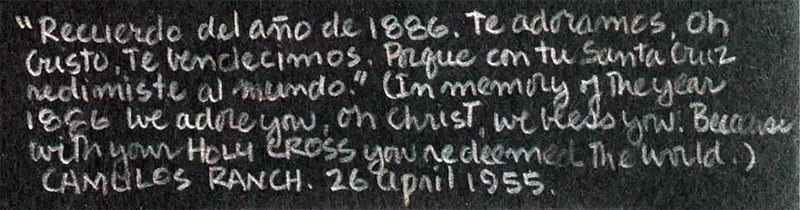 "Recuerdo del año de 1886. Te adoramos, Oh
Cristo, Te bendecimos. Porque con tu Santa Cruz
redimiste al mundo." (In memory of the year
1886 we adore you, oh Christ, we bless you. Because
with your HOLY CROSS you redeemed the world.)
CAMULOS RANCH. 26 April 1955.